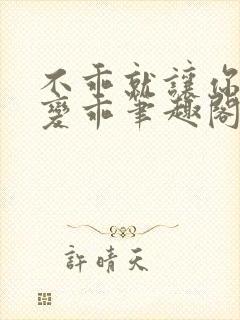 不乖就讓你
變乖筆趣閣
許晴天